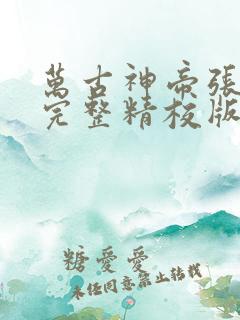 萬古神帝張
完整精校版
糖愛愛
未經同意禁止轉載